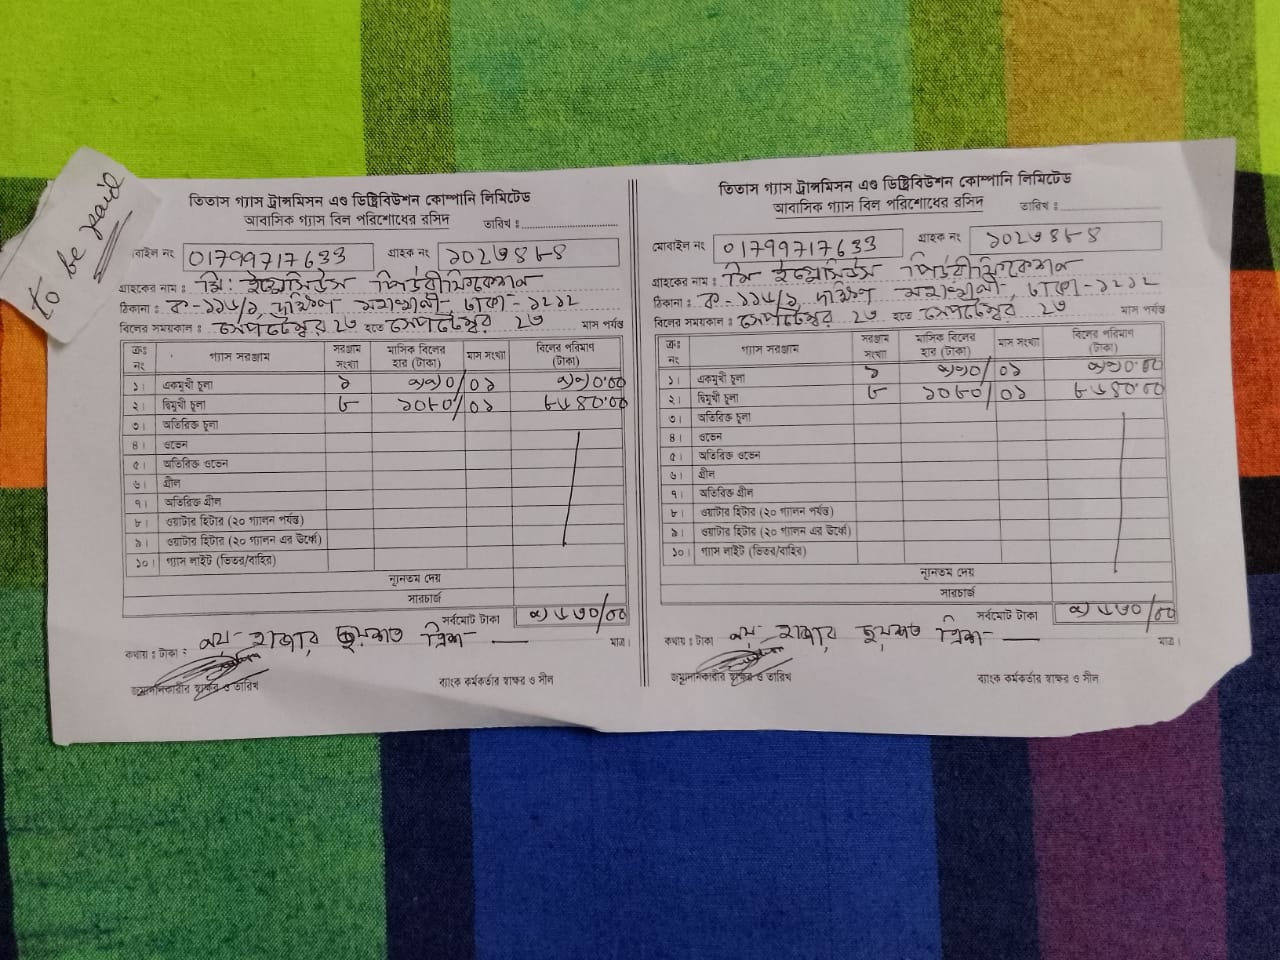 to be paid
তিতাস গ্যাস ট্রান্সমিসন এণ্ড ডিষ্ট্রিবিউশন কোম্পানি লিমিটেড
আবাসিক গ্যাস বিল পরিশোধের রসিদ তারিখ :
বাইল নং 01799717633 গ্রাহক নং
গ্রাহকের নাম : মি:
ঠিকানা : ক-১১৫/১, দক্ষিণ মহাখালী, ঢাকা-১২১২
বিলের সময়কাল : সেপ্টেম্বর ২৩ হতে সেপ্টেম্বর ২৩ মাস পর্যন্ত
ক্রঃ নং গ্যাস সরঞ্জাম সরঞ্জাম সংখ্যা মাসিক বিলের হার (টাকা) মাস সংখ্যা বিলের পরিমাণ (টাকা)
১। একমুখী চুলা ১ ৯৯০/ ০১ ৯৯০.০০
২। দ্বিমুখী চুলা ৮ ১০৮০/ ০১ ৮৬৪০.০০
৩। অতিরিক্ত চুলা
৪। ওভেন
৫। অতিরিক্ত ওভেন
৬। গ্রীল
৭। অতিরিক্ত গ্রীল
৮। ওয়াটার হিটার (২০ গ্যালন পর্যন্ত)
৯। ওয়াটার হিটার (২০ গ্যালন এর উর্ধ্বে)
১০। গ্যাস লাইট (ভিতর/বাহির)
ন্যূনতম দেয়
সারচার্জ
সর্বমোট টাকা ৯৬৩০/০০
কথায় : টাকা : নয় হাজার ছয়শত ত্রিশ মাত্র।
জমাদানকারীর স্বাক্ষর ও তারিখ ব্যাংক কর্মকর্তার স্বাক্ষর ও সীল
তিতাস গ্যাস ট্রান্সমিসন এণ্ড ডিষ্ট্রিবিউশন কোম্পানি লিমিটেড
আবাসিক গ্যাস বিল পরিশোধের রসিদ তারিখ :
মোবাইল নং 01799717633 গ্রাহক নং
গ্রাহকের নাম : মি
ঠিকানা : ক-১১৫/১, দক্ষিণ মহাখালী, ঢাকা-১২১২
বিলের সময়কাল : সেপ্টেম্বর ২৩ হতে সেপ্টেম্বর ২৩ মাস পর্যন্ত
ক্রঃ নং গ্যাস সরঞ্জাম সরঞ্জাম সংখ্যা মাসিক বিলের হার (টাকা) মাস সংখ্যা বিলের পরিমাণ (টাকা)
১। একমুখী চুলা ১ ৯৯০/ ০১ ৯৯০.০০
২। দ্বিমুখী চুলা ৮ ১০৮০/ ০১ ৮৬৪০.০০
৩। অতিরিক্ত চুলা
৪। ওভেন
৫। অতিরিক্ত ওভেন
৬। গ্রীল
৭। অতিরিক্ত গ্রীল
৮। ওয়াটার হিটার (২০ গ্যালন পর্যন্ত)
৯। ওয়াটার হিটার (২০ গ্যালন এর উর্ধ্বে)
১০। গ্যাস লাইট (ভিতর/বাহির)
ন্যূনতম দেয়
সারচার্জ
সর্বমোট টাকা ৯৬৩০/০০
কথায় : টাকা নয় হাজার ছয়শত ত্রিশ মাত্র।
জমাদানকারীর স্বাক্ষর ও তারিখ ব্যাংক কর্মকর্তার স্বাক্ষর ও সীল